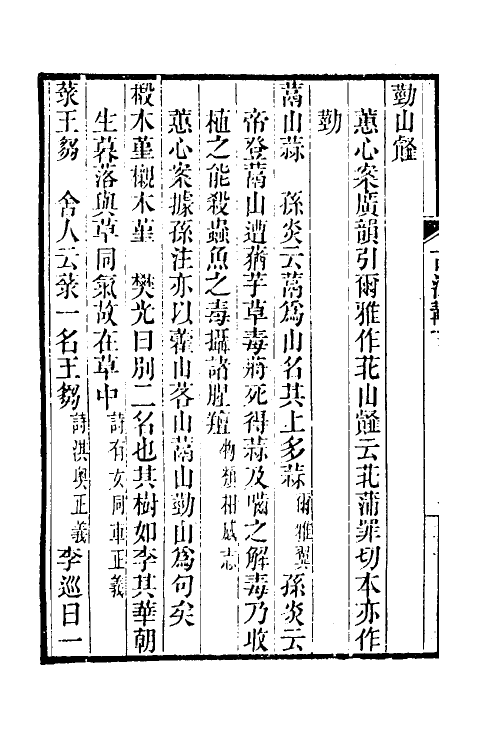 勤山䪥
蕙心案廣韻引爾雅作茈山䪥云茈蒲罪切本亦作
勤
蒚山蒜　孫炎云蒚為山名其上多蒜爾雅翼孫炎云
帝登蒚山遭蕕芋草毒將死得蒜及嚙之解毒乃收
植之能殺蟲魚之毒攝諸腥羶物類相感志
蕙心案據孫注亦以藿山茖山蒚山勤山為句矣
椴木堇櫬木堇　樊光曰別二名也其樹如李其華朝
生暮落與草同氣故在草中詩有女同車正義
菉王芻　舍人云菉一名王芻詩淇奧正義李巡曰一